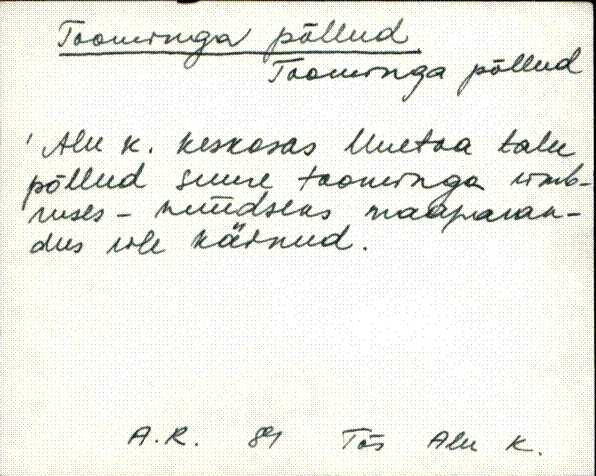 Toominga põllud
Toominga põllud
' Alu k. keskosas Uuetoa talu
põllud suure toominga ümb-
ruses - nüüdseks maaparan-
dus üle käinud.
A.R. 89 Tõs Alu k.